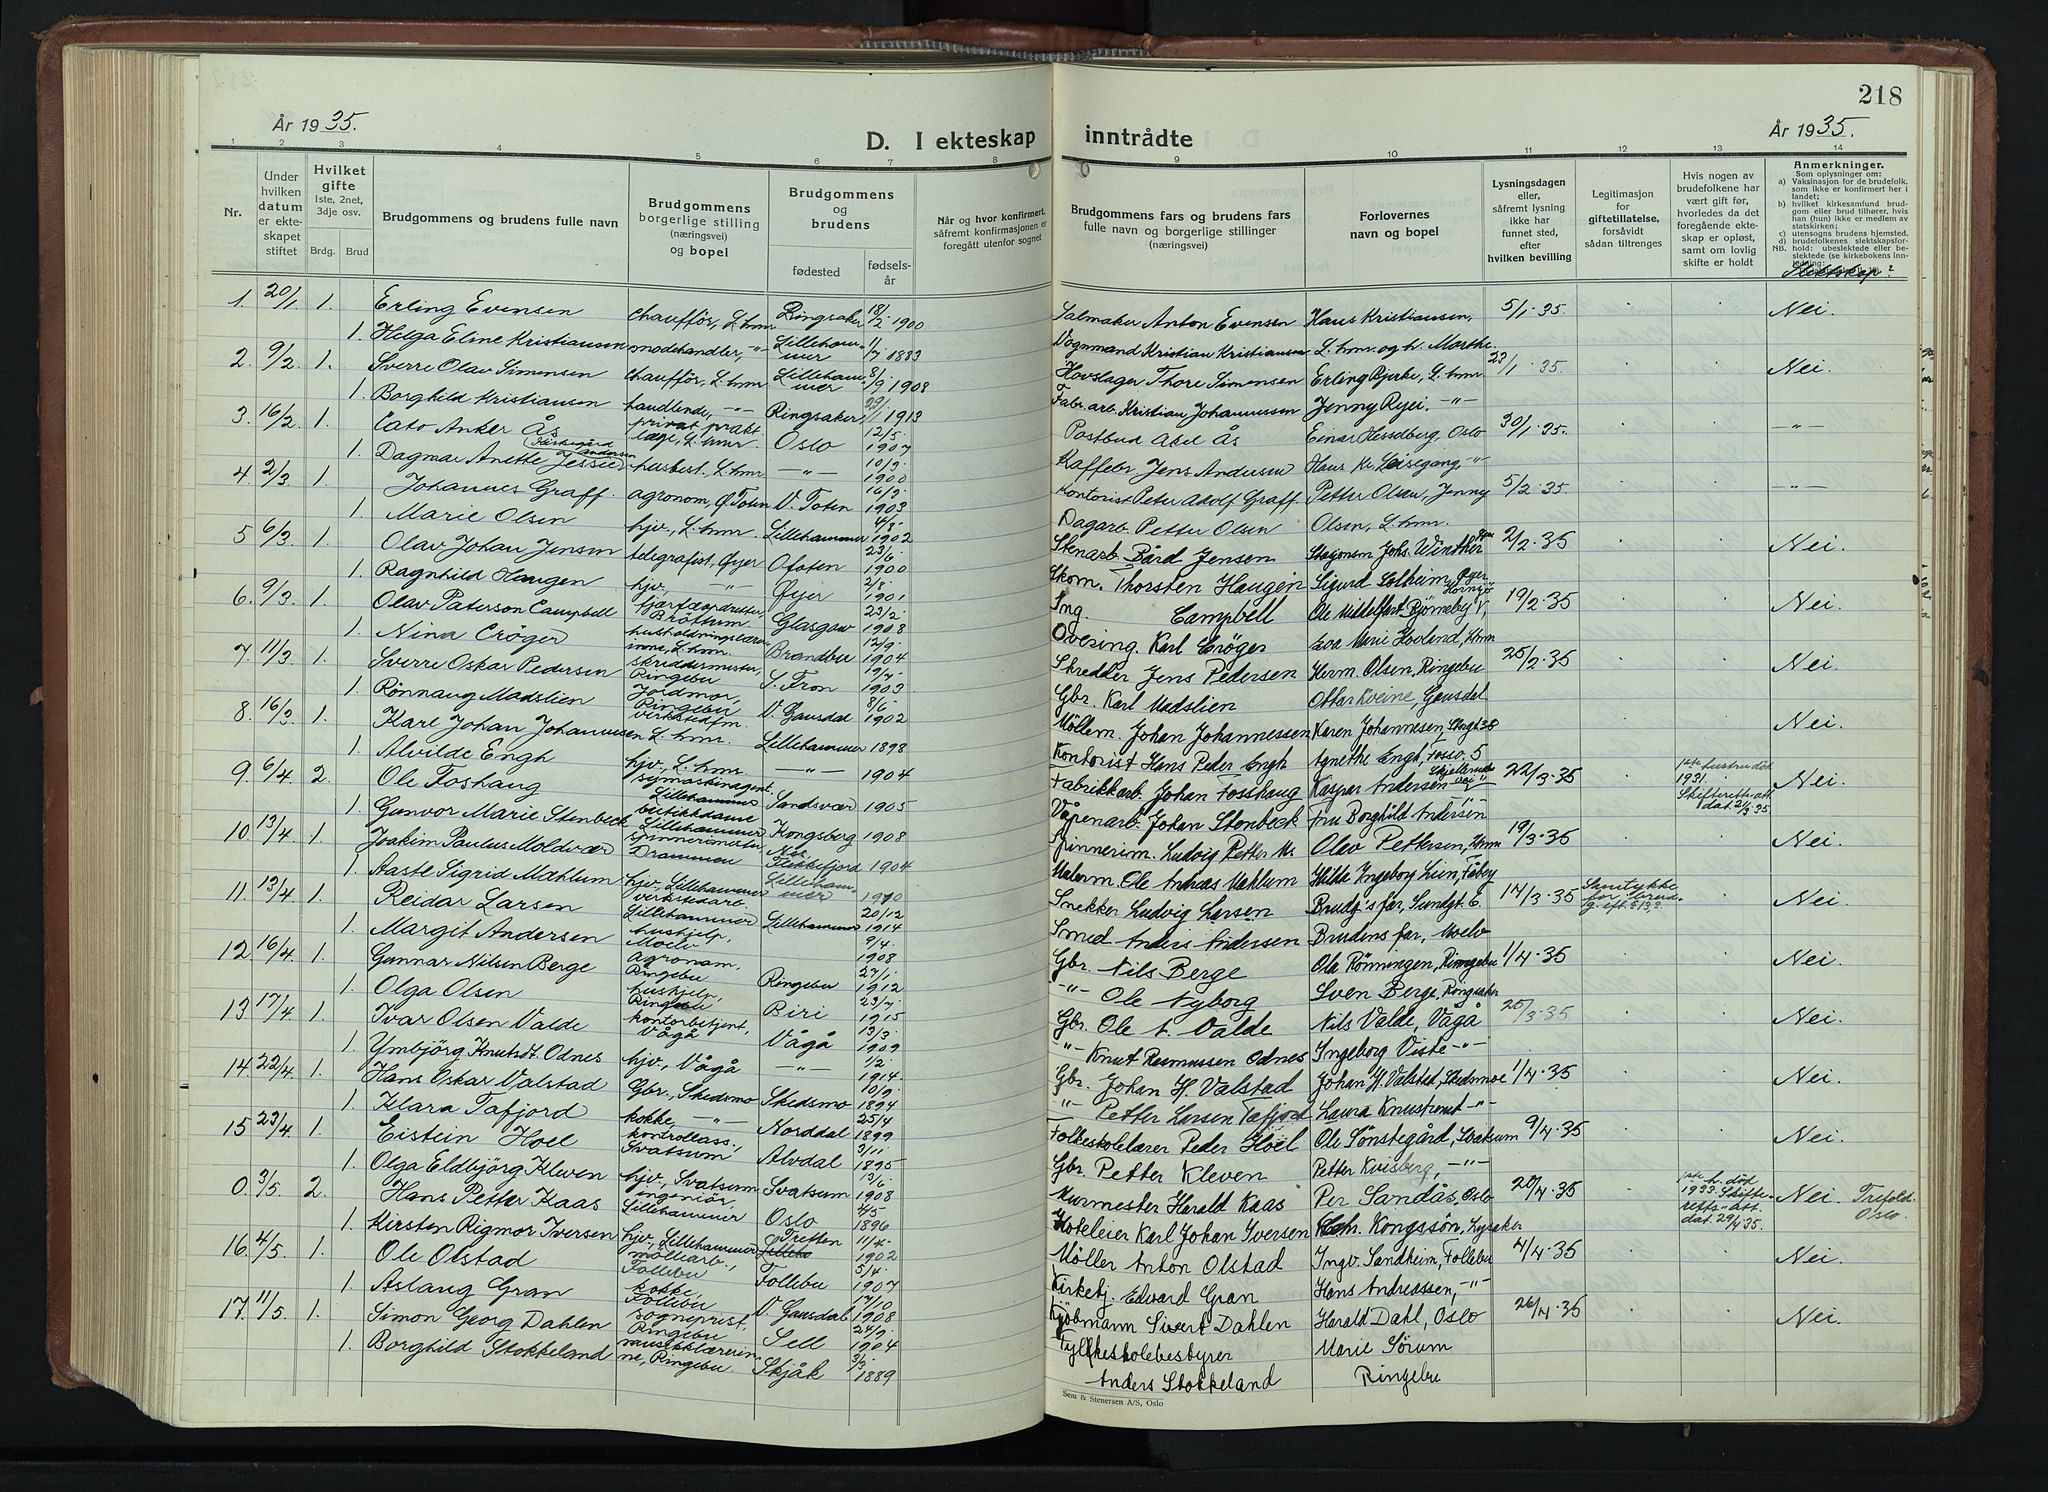 218
År 1935.
D. I ekteskap inntrådte
År 1935.
1 2 3 4 5 6 7 8 9 10 11 12 13 14
Nr.
Under hvilken datum er ekteskapet stiftet
Hvilket gifte 1ste, 2net, 3dje osv.
Brdg. Brud
Brudgommens og brudens fulle navn
Brudgommens borgerlige stilling (næringsvei) og bopel
Brudgommens og brudens
fødested
fødselsår
Når og hvor konfirmert, såfremt konfirmasjonen er foregått utenfor sognet
Brudgommens fars og brudens fars fulle navn og borgerlige stillinger (næringsvei)
Forlovernes navn og bopel
Lysningsdagen eller, såfremt lysning ikke har funnet sted, efter hvilken bevilling
Legitimasjon for giftetillatelse, forsåvidt sådan tiltrenges
Hvis nogen av brudefolkene har vært gift før, hvorledes da det foregående ekteskap er opløst, samt om lovlig skifte er holdt
Anmerkninger.
Som oplysninger om:
a) Vaksinasjon for de brudefolk, som ikke er konfirmert her i landet;
b) hvilket kirkesamfund brudgom eller brud tilhører, hvis han (hun) ikke er medlem av statskirken;
c) utensogns brudens hjemsted.
d) brudefolkenes slektskapsforhold: ubeslektede eller beslektede
1. 20/1 1. Erling Evensen chaufför, L.hmr Ringsaker 18/2 1900 Salmaker Anton Evensen Hans Kristiansen, 5/1.35. Nei.
1. Helga Eline Kristiansen modehandler, -"- Lillehammer 11/7 1883 Vognmand Kristian Kristiansen L.hmr og h. Marthe.
2. 9/2 1. Sverre Olav Simensen chauffør, L.hmr Lillehammer 8/9 1908 Hovslager Thore Simensen Erling Bjerke, L.hmr 23/1 35. Nei.
1. Borghild Kristiansen handlende, -"- Ringsaker 1913 Fabr.arb. Kristian Johannessen Jenny Ryei. -"-
3. 16/2 1. Cato Anker Ås privat prakt. læge, L.hmr. Oslo 12/5 1907 Postbud Abel Ås Einar Hesselberg, Oslo 30/1.35. -"-
1. Dagmar Anette Jessie Andersen husbest. L.hmr -"- 10/3 1900 Kaffebr. Jens Andersen Hans Kr. Leisegang, -"-
4. 2/3 1. Johannes Graff. agronom, Ø.Toten V. Toten 16/3 1903 Kontorist Peter Adolf Graff. Petter Olsen, Jenny 5/2.35. -"-
1. Marie Olsen hjv., L.hmr. Lillehammer 4/8 1902 Dagarb. Petter Olsen Olsen, L.hmr.
5. 6/3. 1. Olav Johan Jensen telegrafist, Øyer Ofoten 23/6 1900 Stenarb. Bård Jensen Stasjonsm. Johs. Winther 2/2.35 Nei.
1. Ragnhild Haugen hjv., -"- Øyer 2/8 1901 Skom. Thorsten Haugen Sigurd Solheim, Øyer
6. 9/3. 1. Olav Paterson Campbell fjærfeopdretter, Brøttum Glasgow 23/2 1908 Ing. Campbell Ole Middelfart Bjørneby 19/2.35 Nei.
1. Nina Crøger husholdningslærerinne, L.hmr. Brandbu 12/9 1904 Overing. Karl Crøger Eva Marie Hovland, Hmr
7. 11/3 1. Sverre Oskar Pedersen skreddermester, Ringebu S. Fron 19/7 1903 Skredder Jens Pedersen Herm. Olsen, Ringebu 25/2.35 Nei.
1. Rønnaug Madslien Jordmor, Ringebu V. Gausdal 8/6 1902 Gbr. Karl Madslien Ottar Kveine, Gausdal
8. 16/3. 1. Karl Johan Johannessen verkstedfm. L.hmr. Lillehammer 1898 Møllem. Johan Johannessen Karen Johannesen, Nei.
1. Alvilde Engh hjv., L.hmr. -"- 1904 Kontorist Hans Peder Engh Agnethe Engh, Fosso. 5
9. 6/4. 2. Ole Foshaug symaskinagent, Lillehammer Sandsvær 1905 Fabrikkarb. Johan Fosshaug Kaspar Andersen 22/3.35 1ste hustru död 1931. Skifteretts.att dat. 21/3.35. Nei.
1. Gunvor Marie Stenbeck butikkdame Lillehammer Kongsberg 1908 Våpenarb. Johan Stenbeck Fru Borghild Andersen
10. 13/4. 1. Joakim Paulus Moldvær spinnerimester, Drammen Flekkefjord 1904 Spinnerim. Ludvig Petter M. Olav Pettersen, Hmr 19/3.35 Nei.
1. Aaste Sigrid Mæhlum hjv., Lillehammer Lillehammer 1910 Malerm. Ole Andreas Mæhlum Hilda Ingeborg Lien, Fåberg
11. 13/4 1. Reidar Larsen verkstedarb. Lillehammer Lillehammer 20/12 1914 Snekker Ludvig Larsen Brudg's far, Sundgt. 6. 14/3.35 Samtykke for brudg. Nei.
1. Margit Andersen hushjelp, Moelv 9/4. 1908 Smed Anders Andersen Brudens far, Moelv
12. 16/4. 1. Gunnar Nilsen Berge agronom, Ringebu Ringebu 27/1 1912 Gbr. Nils Berge Ola Rønningen, Ringebu 1/4.35 Nei.
1. Olga Olsen hushjelp, Ringebu Biri 23/7 1915 -"- Ole Nyborg Sven Berge, Ringsaker
13. 17/4 1. Ivar Olsen Valde kontorbetjent, Vågå Vågå 13/3. 1909 Gbr. Ole A. Valde Nils Valde, Vågå 25/3.35 Nei.
1. Ymbjörg Knutsdt. Odnes hjv., Vågå -"- 1/2 1914 -"- Knut Rasmussen Odnes Ingeborg Viste -"-
14. 22/4 1. Hans Oskar Valstad Gbr., Skedsmo Skedsmo 10/9 1894 Gbr. Johan H. Valstad Johan H. Valstad, Skedsmo 1/4.35 Nei.
1. Klara Tafjord kokke, -"- Norddal 25/4 1899 -"- Petter Larsen Tafjord Laura Knustrønt -"-
15. 23/4. 1. Eistein Hoel kontrollass., Svatsum Alvdal 3/11 1895 Folkeskolelærer Peder Hoel. Ole Sønstegård, Svatsum 9/4.35 Nei.
1. Olga Eldbjörg Kleven hjv., Svatsum Svatsum 13/6. 1908 Gbr. Petter Kleven Petter Kvisberg, -"-
0. 3/5. 2. Hans Petter Kaas ingeniør, Lillehammer Oslo 4/5 1896 Murmester Harald Kaas Per Sandås, Oslo 20/4.35 1ste h. död 1933. Skifteretts.-att. dat. 29/4 35. Nei. Trefold. Oslo.
1. Kirsten Rigmor Iversen hjv., Lillehammer Tretten 11/4. 1902 Hoteleier Karl Johan Iversen Kongssøn, Lysaker
16. 4/5. 1. Ole Olstad møllearb., Follebu Follebu 5/4. 1907 Möller Anton Olstad Ingv. Sandheim, Follebu 4/4.35 Nei.
1. Aslaug Gran kokke, Follebu V. Gausdal 17/10 1908 Kirketj. Edvard Gran Hans Andreassen, -"-
17. 11/5. 1. Simon Georg Dahlen sogneprest, Ringebu Sell 24/9. 1904 Kjøbmann Sivert Dahlen Harald Dahl, Oslo 26/4.35 Nei.
1. Borghild Stokkeland musikklærerinne, Ringebu. Skjåk 3/3. 1889 Fylkeskolebestyrer Anders Stokkeland Marie Sørum Ringebu
Sem & Stenersen A/S, Oslo